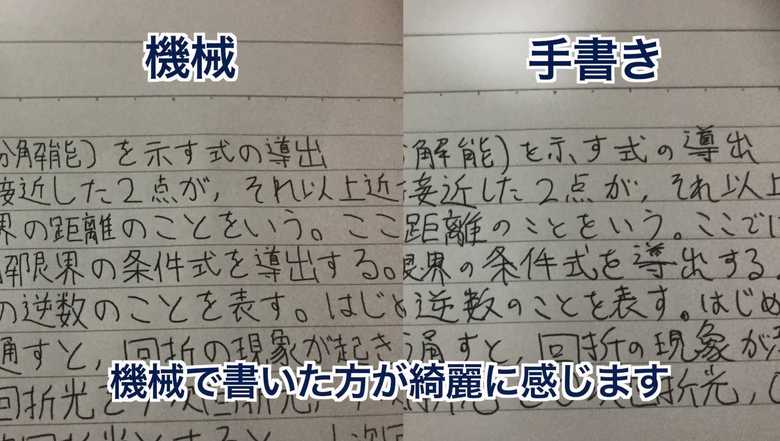 機械
手書き
分解能)を示す式の導出
接近した2点が,それ以上近
界の距離のことをいう。ここ
解限界の条件式を導出する。
の逆数のことを表す。はじめ
通すと,回折の現象が起き
分解能)を示す式の導出
接近した2点が,それ以上
距離のことをいう。ここで
限界の条件式を導出する
逆数のことを表す。はじめ
通すと,回折の現象が
機械で書いた方が綺麗に感じます
回折光
回折光,